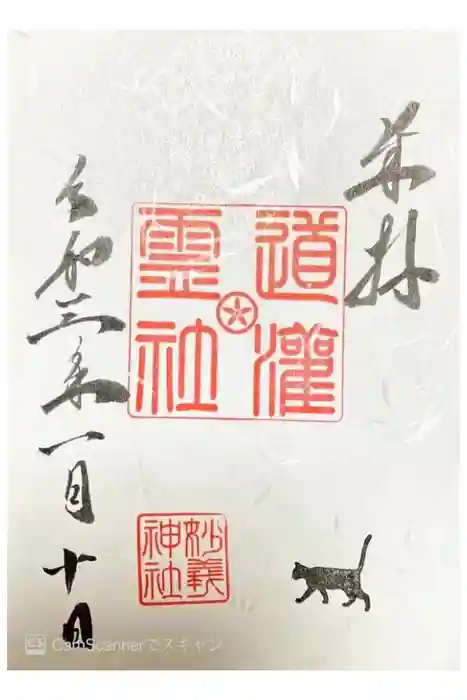 奉拝
道灌
霊社
令和三年一月十日
妙義
神社
CS CamScannerでスキャン